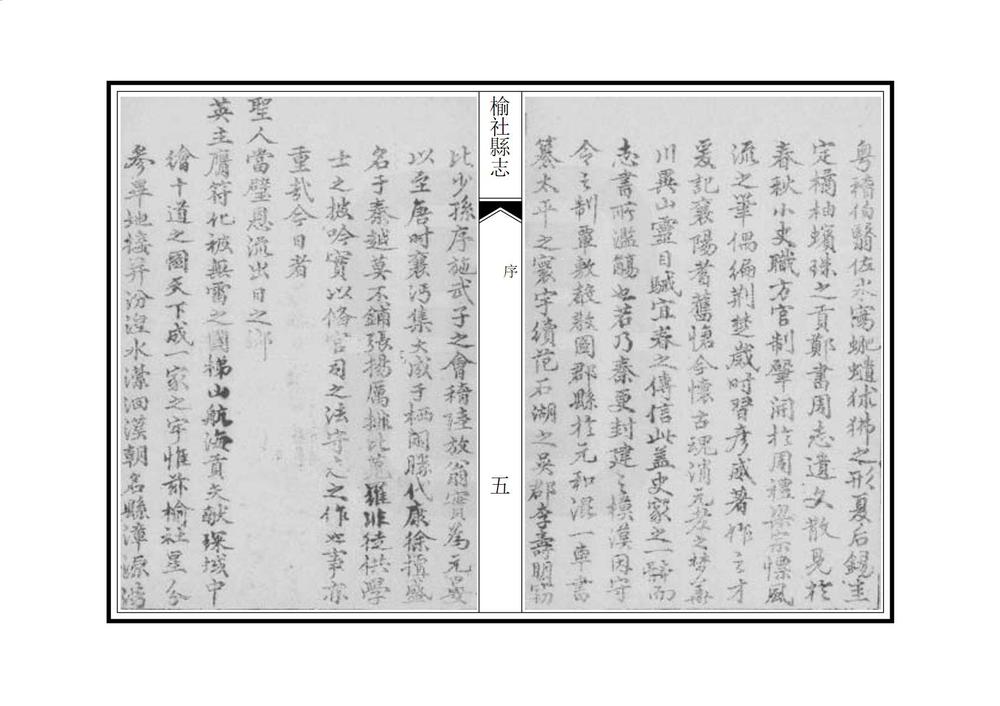 粵稽伯翳佐水寫蚍蝣狖狒之形夏后錫圭
定橘柚蠙珠之貢鄭書周志遺文散見於
春秋小史職方官制肇開於周禮梁宗懍風
流之筆偶編荆楚歲時習彥威著作之才
爰記襄陽耆舊愴今懷古魂消元孝之夢華
川異山靈目駴宜春之傳信此蓋史家之一體而
志書所濫觴也若乃秦更封建之模漢因守
令之制覃敷教圖郡縣於元和混一車書
纂太平之寰宇續范石湖之吳郡李壽朋竊
榆社縣志
序
五
比少孫序施武子之會稽陸放翁實為元晏
以至唐時襄沔集大成于栖閑勝代康徐擅盛
名于秦越莫不鋪張揚厲排比羅非徒供學
士之披吟實以俻官司之法守志之作也事亦
重哉今日者
聖人當璧恩流出日之鄉
英主膺符化被無雷之國梯山航海貢文献琛域中
繪十道之圖天下成一家之字惟茲榆社星分
參畢地接并汾湼水瀠洄漢朝名縣漳源